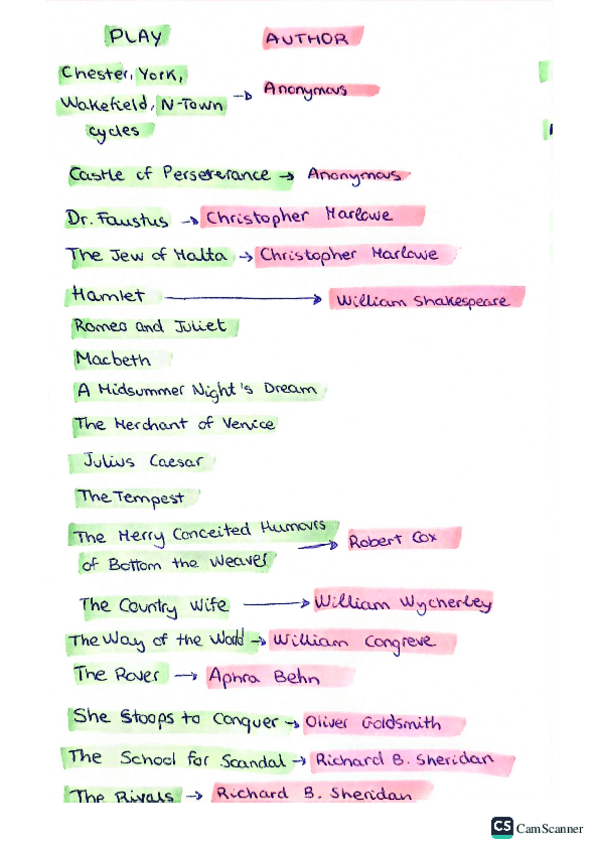 PLAY AUTHOR
Chester, York,
Wakefield, N-Town → Anonymous
cycles
Castle of Perseverance → Anonymous
Dr. Faustus → Christopher Marlowe
The Jew of Malta → Christopher Marlowe
Hamlet → William Shakespeare
Romeo and Juliet
Macbeth
A Midsummer Night's Dream
The Merchant of Venice
Julius Caesar
The Tempest
The Merry Conceited Humours
of Bottom the Weaver → Robert Cox
The Country Wife → William Wycherley
The Way of the World → William Congreve
The Rover → Aphra Behn
She Stoops to Conquer → Oliver Goldsmith
The School for Scandal → Richard B. Sheridan
The Rivals → Richard B. Sheridan
CS CamScanner